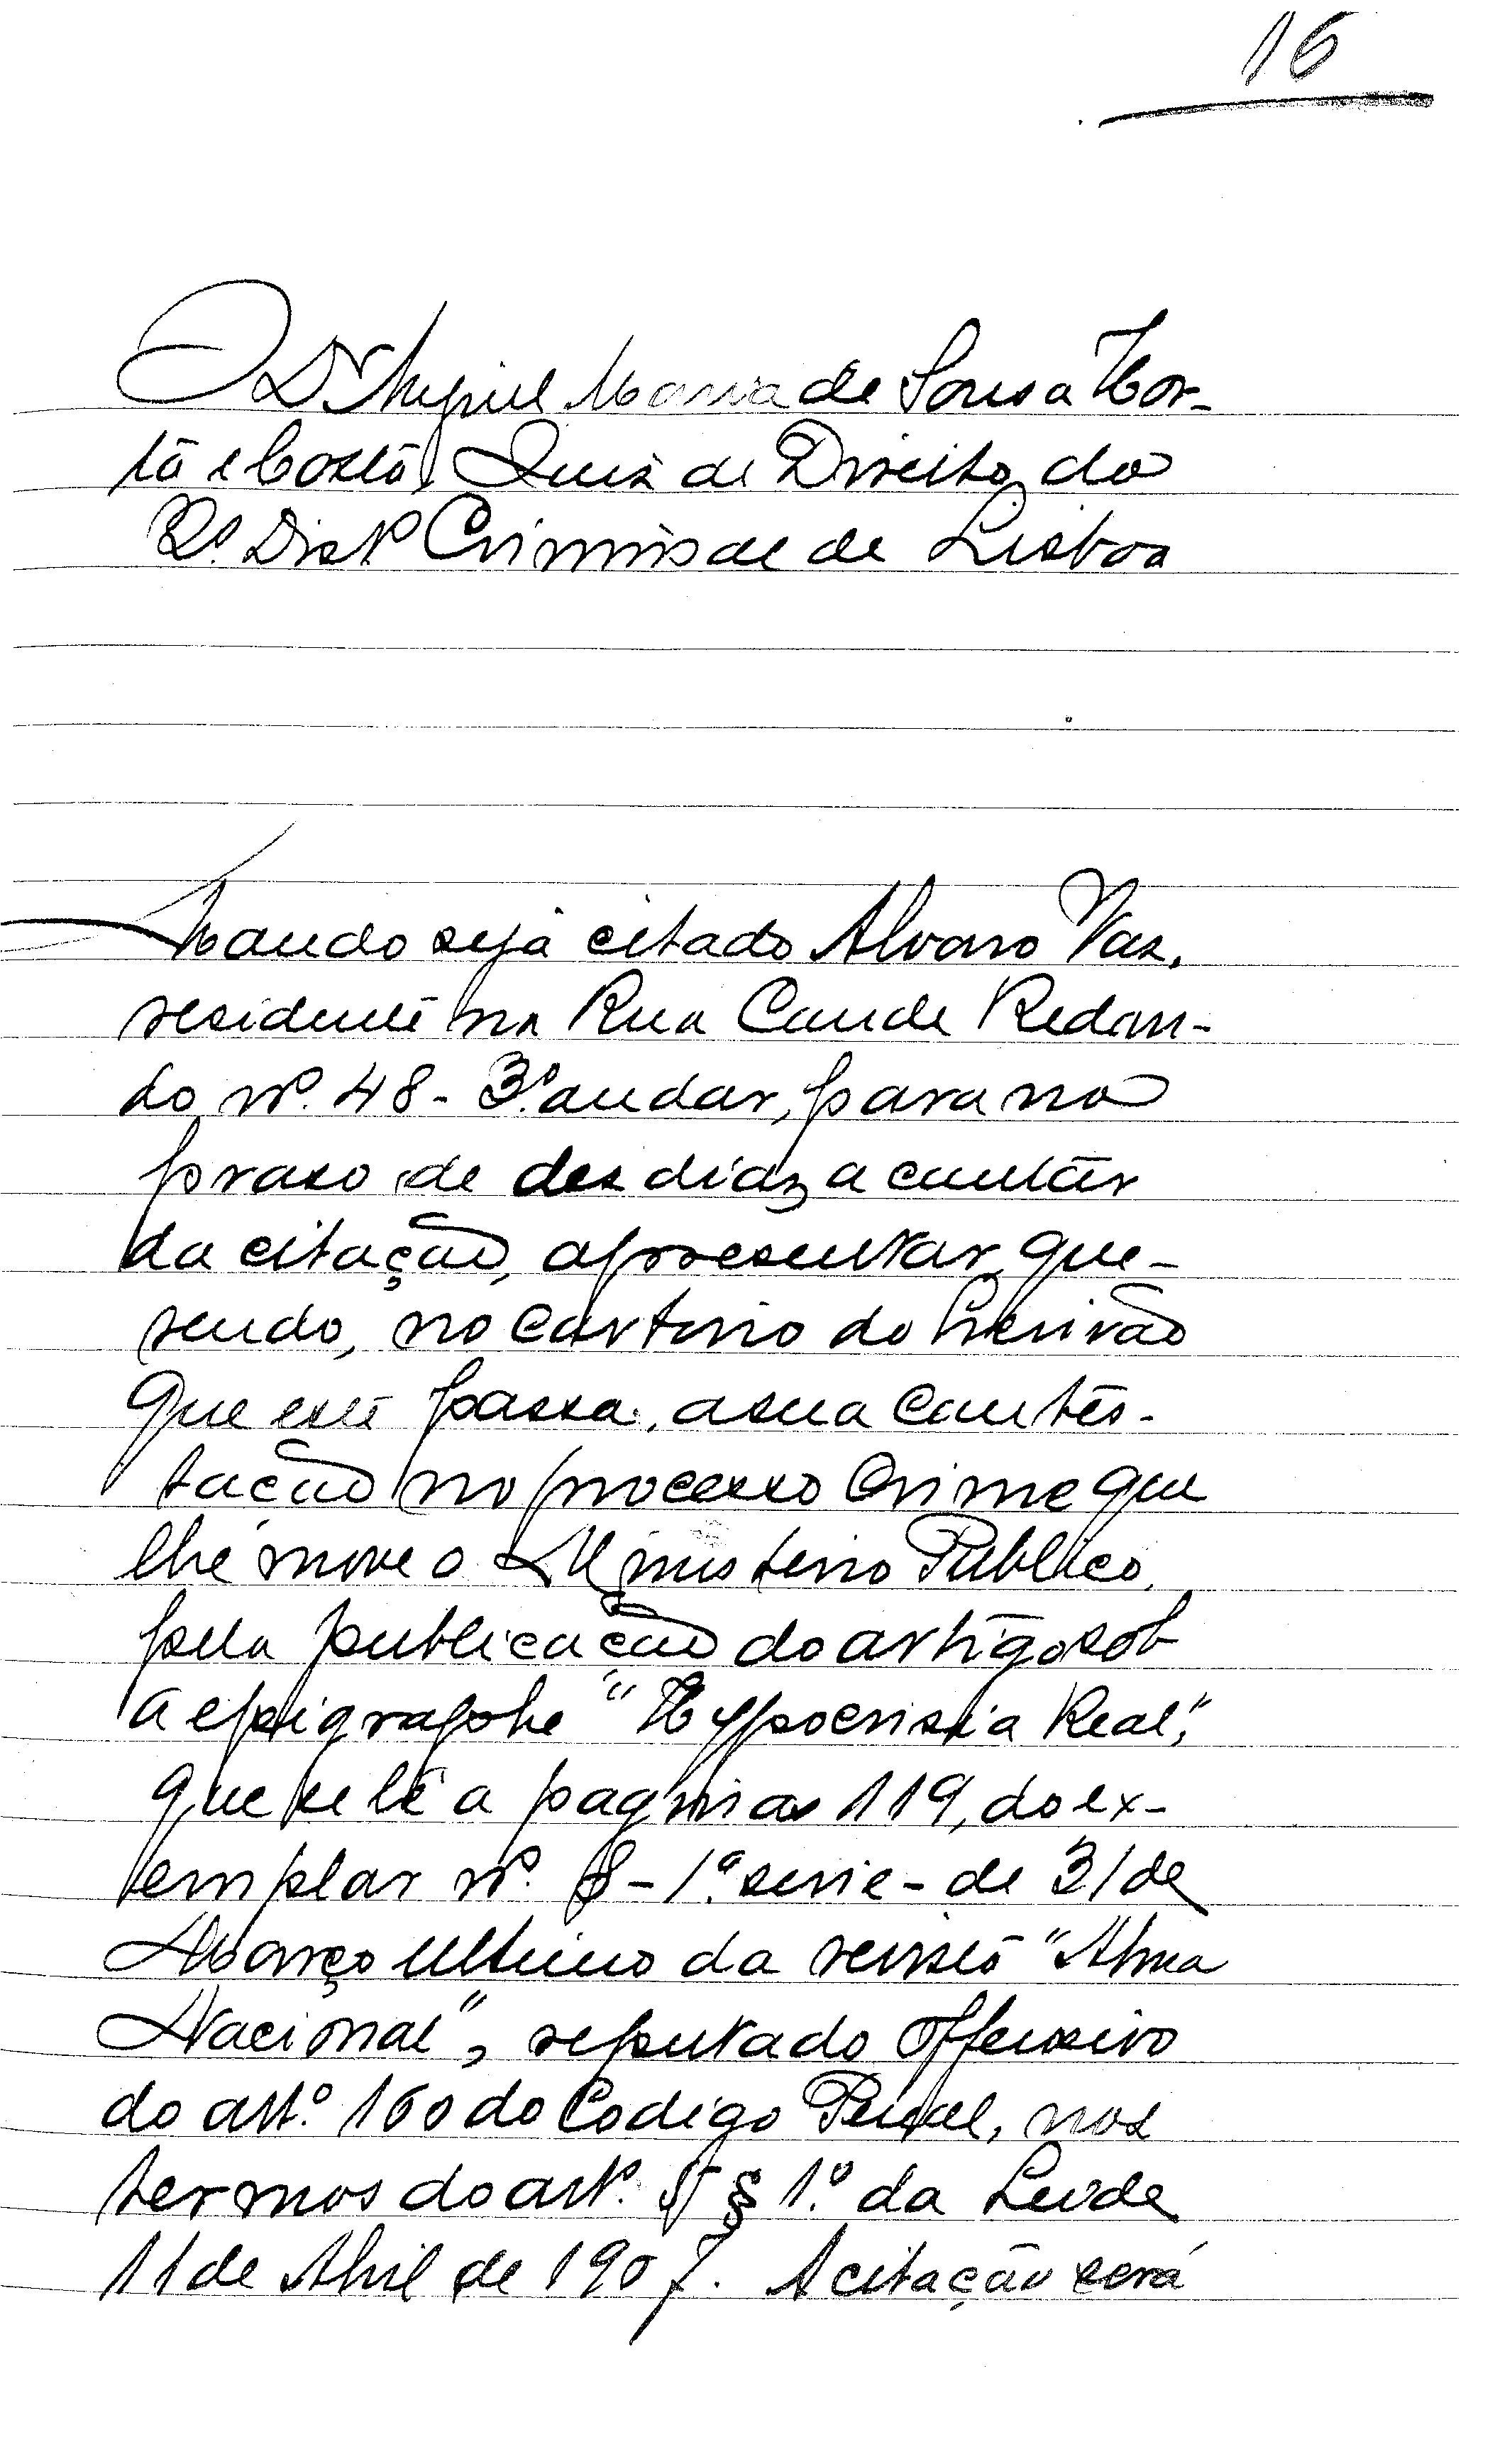 16
O Dr Miguel Maria de Sousa Hor-
ta e Costa, Juiz de Direito do
2º. Distº Criminal de Lisboa
Mando seja citado Alvaro Vaz,
residente na Rua Conde Redon-
do nº. 48 - 3º. andar, para no
praso de des dias, a contar
da citação, apresentar, que-
rendo, no cartorio do Escrivão
que este passa, a sua contes-
tação no processo crime que
lhe move o Ministerio Publico,
pela publicação do artigo sob
a epigraphe "Hypocrisia Real",
que se lê a paginas 119, do ex-
emplar nº. 8 - 1ª. serie - de 31 de
Março ultimo da revista "Alma
Nacional", reputado offensivo
do artº. 160 do Codigo Penal, nos
termos do artº. 5 § 1º. da Lei de
11 de Abril de 1907. A citação será